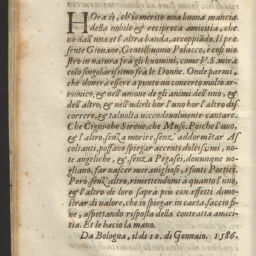 HOra sì, ch'io merito una buona mancia
della nobile & reciproca amicitia, che
hò dall'una et l'altra banda, accoppiãdo. Il pre
sente Giovane, Gentilhuomo Polacco, è così mo-
stro in natura frà gli huomini, come V. S. mira
colo singolarissimo frà le Donne. Onde parmi,
che dovrà essere à punto un concerto molto ar-
monico, & nell'unione de gli animi dell'uno, &
dell'altro, & nell'udirli hor l'uno hor l'altro dis
correre, & talvolta vicendevolmente cantare.
Che Cigno che Sirene, che Muse. Poiche l'uno,
& l'altro, senza morire, senz'addormẽtar As
coltanti, possono spiegar accenti dolcissimi, no-
te angeliche, & senz'a Pegasei, dovunque vo-
gliano, far nascer meravigliosi, i fonti Poetici.
Però, senz'altro, rimettendomi à quanto l'uno,
& l'altro di loro saprà più con effetti dimo-
strar di valore, che io spiegar in carta, faccio fi-
ne, aspettando risposta della contratta amici-
tia. Et le bacio la mano.
Da Bologna, il dì 10. di Gennaio. 1586.